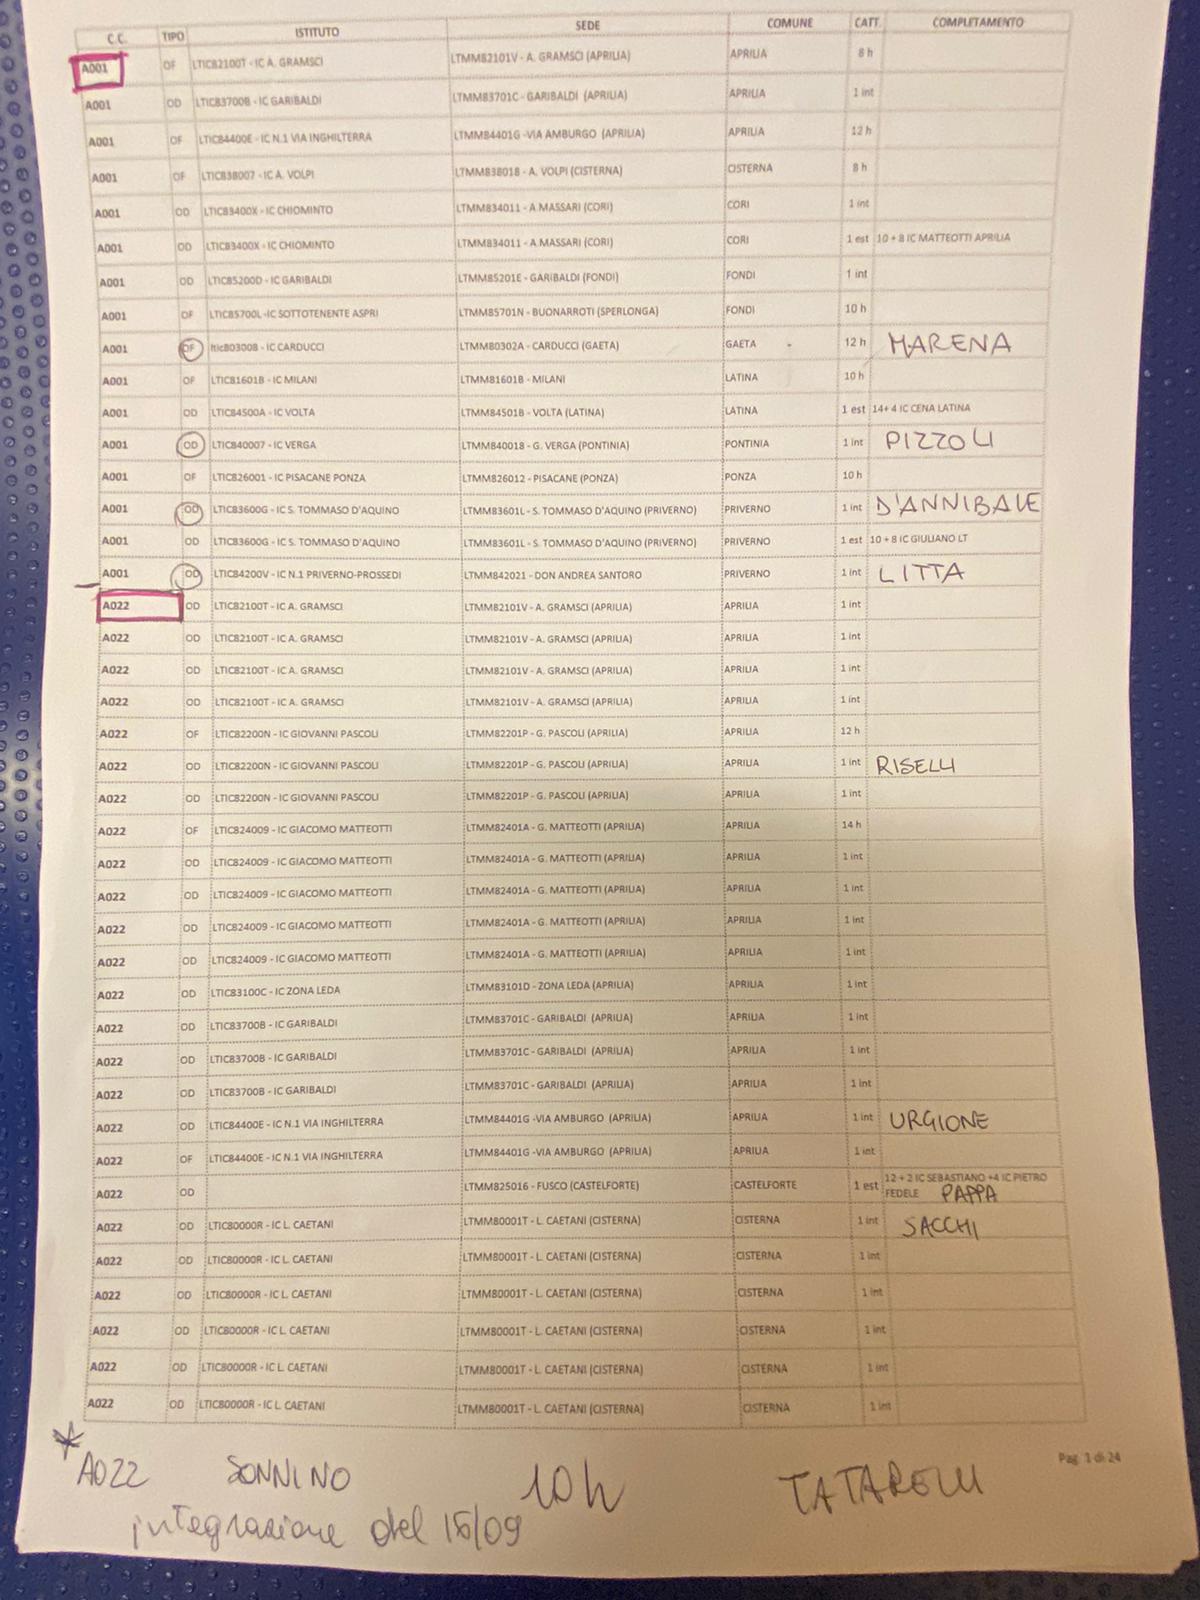 C.C. TIPO ISTITUTO SEDE COMUNE CATT. COMPLETAMENTO
A001 OF LTIC82100T - IC A. GRAMSCI LTMM82101V - A. GRAMSCI (APRILIA) APRILIA 8 h
A001 OD LTIC83700B - IC GARIBALDI LTMM83701C - GARIBALDI (APRILIA) APRILIA 1 int
A001 OF LTIC84400E - IC N.1 VIA INGHILTERRA LTMM84401G -VIA AMBURGO (APRILIA) APRILIA 12 h
A001 OF LTIC838007 - IC A. VOLPI LTMM838018 - A. VOLPI (CISTERNA) CISTERNA 8 h
A001 OD LTIC83400X - IC CHIOMINTO LTMM834011 - A.MASSARI (CORI) CORI 1 int
A001 OD LTIC83400X - IC CHIOMINTO LTMM834011 - A.MASSARI (CORI) CORI 1 est 10 + 8 IC MATTEOTTI APRILIA
A001 OD LTIC85200D - IC GARIBALDI LTMM85201E - GARIBALDI (FONDI) FONDI 1 int
A001 OF LTIC85700L -IC SOTTOTENENTE ASPRI LTMM85701N - BUONARROTI (SPERLONGA) FONDI 10 h
A001 OF ltic80300B - IC CARDUCCI LTMM80302A - CARDUCCI (GAETA) GAETA 12 h MARENA
A001 OF LTIC81601B - IC MILANI LTMM81601B - MILANI LATINA 10 h
A001 OD LTIC84500A - IC VOLTA LTMM84501B - VOLTA (LATINA) LATINA 1 est 14+ 4 IC CENA LATINA
A001 OD LTIC840007 - IC VERGA LTMM840018 - G. VERGA (PONTINIA) PONTINIA 1 int PIZZOLI
A001 OF LTIC826001 - IC PISACANE PONZA LTMM826012 - PISACANE (PONZA) PONZA 10 h
A001 OD LTIC83600G - IC S. TOMMASO D'AQUINO LTMM83601L - S. TOMMASO D'AQUINO (PRIVERNO) PRIVERNO 1 int D'ANNIBALE
A001 OD LTIC83600G - IC S. TOMMASO D'AQUINO LTMM83601L - S. TOMMASO D'AQUINO (PRIVERNO) PRIVERNO 1 est 10 + 8 IC GIULIANO LT
A001 OD LTIC84200V - IC N.1 PRIVERNO-PROSSEDI LTMM842021 - DON ANDREA SANTORO PRIVERNO 1 int LITTA
A022 OD LTIC82100T - IC A. GRAMSCI LTMM82101V - A. GRAMSCI (APRILIA) APRILIA 1 int
A022 OD LTIC82100T - IC A. GRAMSCI LTMM82101V - A. GRAMSCI (APRILIA) APRILIA 1 int
A022 OD LTIC82100T - IC A. GRAMSCI LTMM82101V - A. GRAMSCI (APRILIA) APRILIA 1 int
A022 OD LTIC82100T - IC A. GRAMSCI LTMM82101V - A. GRAMSCI (APRILIA) APRILIA 1 int
A022 OF LTIC82200N - IC GIOVANNI PASCOLI LTMM82201P - G. PASCOLI (APRILIA) APRILIA 12 h
A022 OD LTIC82200N - IC GIOVANNI PASCOLI LTMM82201P - G. PASCOLI (APRILIA) APRILIA 1 int RISELLI
A022 OD LTIC82200N - IC GIOVANNI PASCOLI LTMM82201P - G. PASCOLI (APRILIA) APRILIA 1 int
A022 OF LTIC824009 - IC GIACOMO MATTEOTTI LTMM82401A - G. MATTEOTTI (APRILIA) APRILIA 14 h
A022 OD LTIC824009 - IC GIACOMO MATTEOTTI LTMM82401A - G. MATTEOTTI (APRILIA) APRILIA 1 int
A022 OD LTIC824009 - IC GIACOMO MATTEOTTI LTMM82401A - G. MATTEOTTI (APRILIA) APRILIA 1 int
A022 OD LTIC824009 - IC GIACOMO MATTEOTTI LTMM82401A - G. MATTEOTTI (APRILIA) APRILIA 1 int
A022 OD LTIC824009 - IC GIACOMO MATTEOTTI LTMM82401A - G. MATTEOTTI (APRILIA) APRILIA 1 int
A022 OD LTIC83100C - IC ZONA LEDA LTMM83101D - ZONA LEDA (APRILIA) APRILIA 1 int
A022 OD LTIC83700B - IC GARIBALDI LTMM83701C - GARIBALDI (APRILIA) APRILIA 1 int
A022 OD LTIC83700B - IC GARIBALDI LTMM83701C - GARIBALDI (APRILIA) APRILIA 1 int
A022 OD LTIC83700B - IC GARIBALDI LTMM83701C - GARIBALDI (APRILIA) APRILIA 1 int
A022 OD LTIC84400E - IC N.1 VIA INGHILTERRA LTMM84401G -VIA AMBURGO (APRILIA) APRILIA 1 int URGIONE
A022 OF LTIC84400E - IC N.1 VIA INGHILTERRA LTMM84401G -VIA AMBURGO (APRILIA) APRILIA 1 int
A022 OD LTMM825016 - FUSCO (CASTELFORTE) CASTELFORTE 1 est 12 + 2 IC SEBASTIANO +4 IC PIETRO
FEDELE PAPPA
A022 OD LTIC80000R - IC L. CAETANI LTMM80001T - L. CAETANI (CISTERNA) CISTERNA 1 int SACCHI
A022 OD LTIC80000R - IC L. CAETANI LTMM80001T - L. CAETANI (CISTERNA) CISTERNA 1 int
A022 OD LTIC80000R - IC L. CAETANI LTMM80001T - L. CAETANI (CISTERNA) CISTERNA 1 int
A022 OD LTIC80000R - IC L. CAETANI LTMM80001T - L. CAETANI (CISTERNA) CISTERNA 1 int
A022 OD LTIC80000R - IC L. CAETANI LTMM80001T - L. CAETANI (CISTERNA) CISTERNA 1 int
A022 OD LTIC80000R - IC L. CAETANI LTMM80001T - L. CAETANI (CISTERNA) CISTERNA 1 int
Pag. 1 di 24
* A022 SONNINO 10 h TATARELLI
integrazione del 15/09